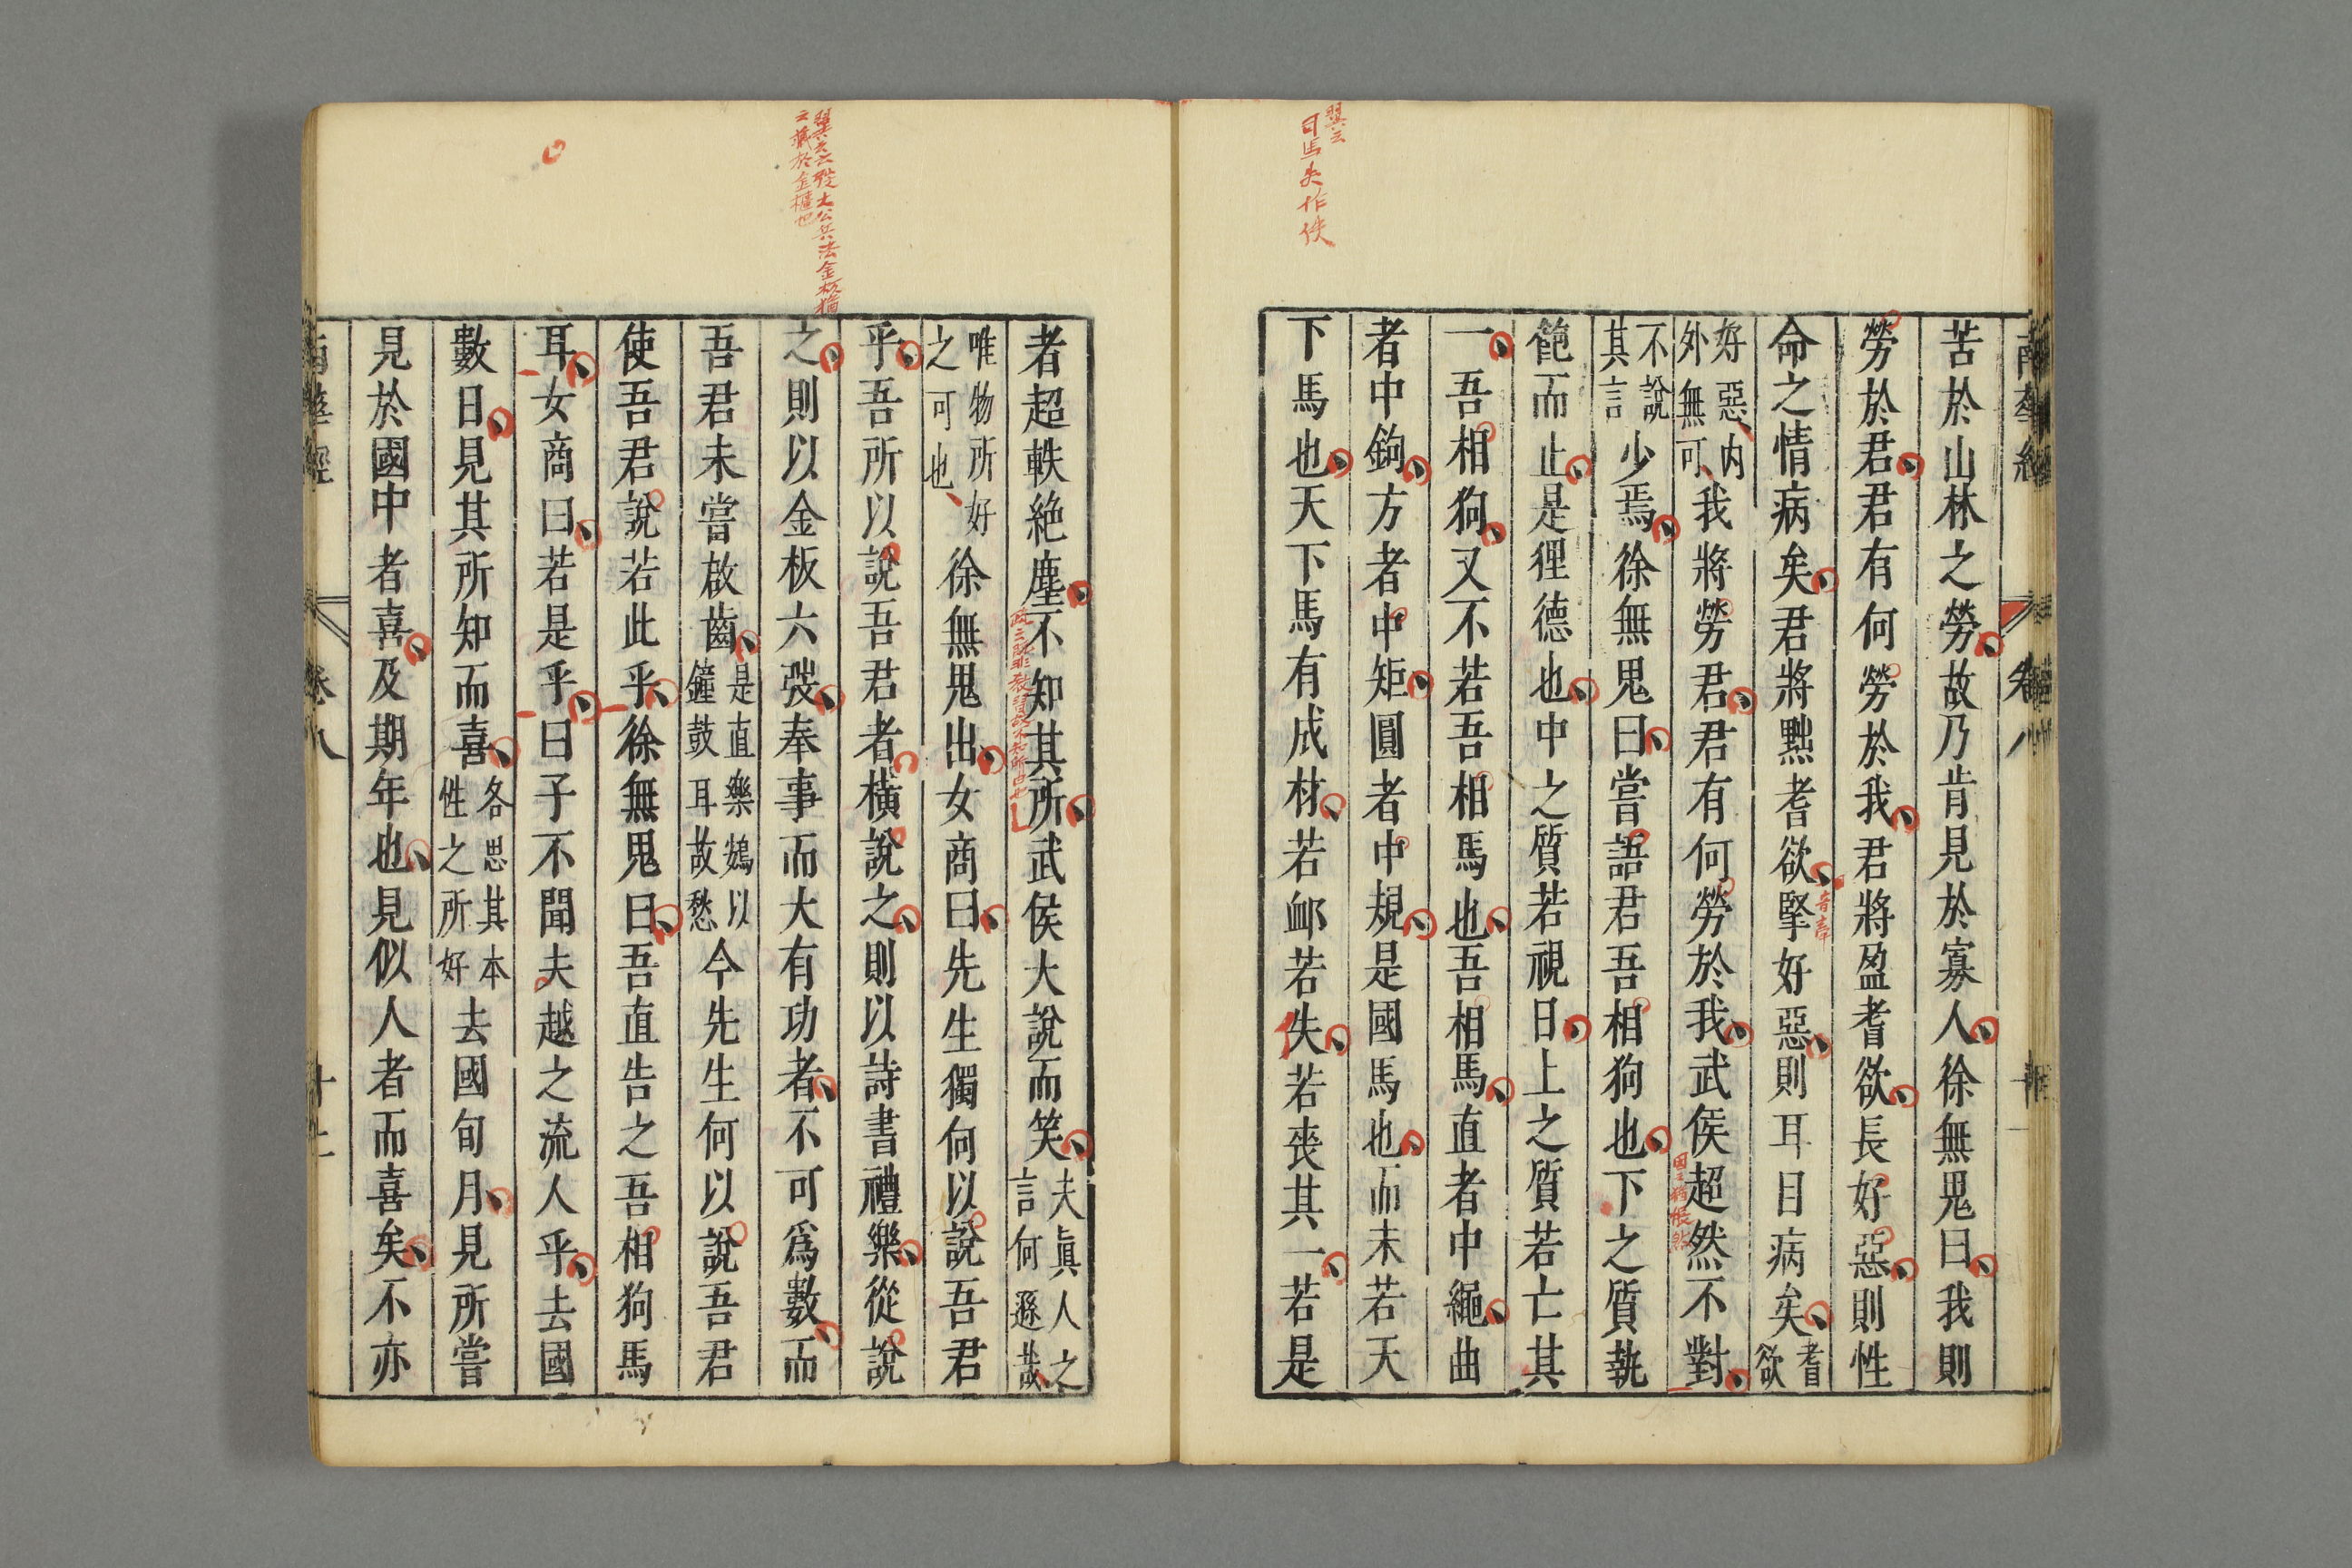 南華經 卷八
苦於山林之勞故乃肯見於寡人徐無鬼曰我則
勞於君君有何勞於我君將盈耆欲長好惡則性
命之情病矣君將黜耆欲掔好惡則耳目病矣耆欲
好惡内外無可我將勞君君有何勞於我武侯超然不對
不說其言少焉徐無鬼曰嘗語君吾相狗也下之質執
飽而止是狸德也中之質若視日上之質若亡其
一吾相狗又不若吾相馬也吾相馬直者中繩曲
者中鉤方者中矩圓者中規是國馬也而未若天
下馬也天下馬有成材若卹若失若喪其一若是
翼云
日馬失作佚
音牽
者超軼絶塵不知其所武侯大說而笑夫眞人之言何遜哉
唯物所好之可也徐無鬼出女商曰先生獨何以說吾君
乎吾所以說吾君者橫說之則以詩書禮樂從說
之則以金板六弢奉事而大有功者不可爲數而
吾君未嘗啟齒是直樂鴳以鐘鼓耳故愁今先生何以說吾君
使吾君說若此乎徐無鬼曰吾直告之吾相狗馬
耳女商曰若是乎曰子不聞夫越之流人乎去國
數日見其所知而喜各思其本性之所好去國旬月見所嘗
見於國中者喜及期年也見似人者而喜矣不亦
翼云六弢太公兵法金板猶
云藏於金櫃也
南華經 卷八